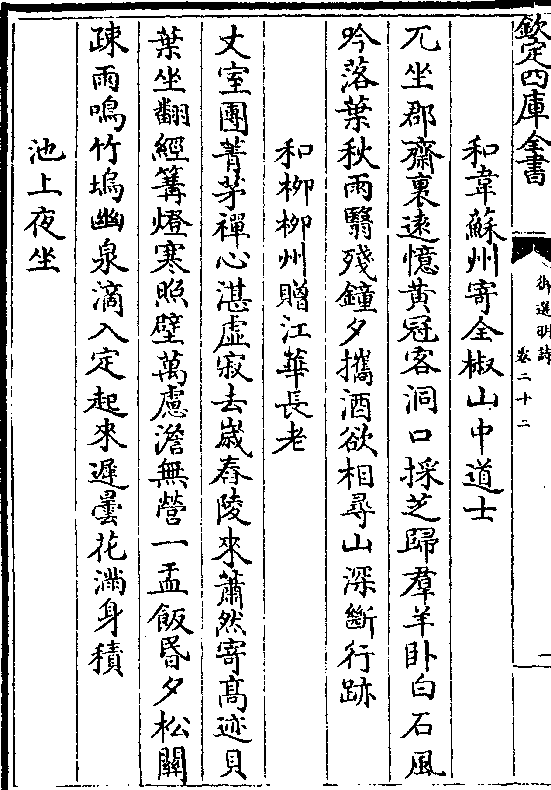 欽定四庫全書
御選明詩
卷二十二
和韋蘇州寄全椒山中道士
兀坐郡齋裏遠憶黄冠客洞口採芝歸羣羊卧白石風
吟落葉秋雨翳殘鐘夕攜酒欲相尋山深斷行跡
和柳柳州贈江華長老
丈室團菁茅禪心湛虚寂去歲舂陵來蕭然寄髙迹貝
葉坐翻經篝燈寒照壁萬慮澹無營一盂飯昏夕松關
疎雨鳴竹塢幽泉滴入定起來遲曇花滿身積
池上夜坐